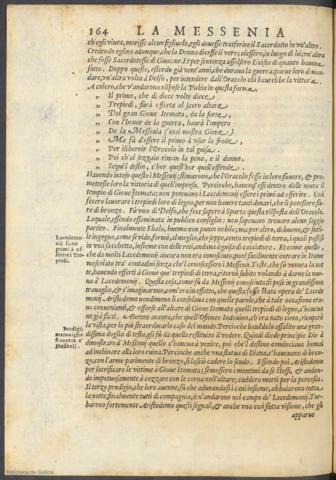 164 LA MESSENIA
ch'egli viueua, morisse alcun figliuolo, egli douesse trasferire il Sacerdotio in vn'altro.
Credendo egli no adunque, che la Donna dicesse il vero; elessero, in luogo di lei, vn'altra
che fosse Sacerdotessa di Giunone. Et per sentenza assolsero Licisco di quanto haueua
fatto. Doppo questo, essendo già vent'anni, che duraua la guerra, a parue loro di man-
dare, vn'altra volta à Delfo, per intendere dall'Oracolo chi haurebbe la vittoria.
A coloro, che v'andarono rispose la Pithia in questa forma
" Il primo, che di diece volte diece
" Trepiedi, farà offerta al sacro altare
" Del gran Gioue Itomata, da la sorte
" Con l'honor de la guerra, haurà l'impero
" De la Messenia (così mostra Gioue)
" Ma fà d'essere il primo à vsar la frode,
" Per ischernir l'Oracolo in tal guisa.
" Poi ch'al
" Seguì'l destin, c'hor quest'hor quell'offende.
Hauendo inteso questo i Messenij; stimarono, che l'Oracolo fosse in loro fauore, & pro-
mettesse loro la vittoria di quell'impresa. Percioche, hauendo essi dentro delle mura il
tempio di Gioue Itomata; non poteuano i Lacedemonij essere i primi ad offerire. Così
fecero lauorare i trepiedi loro di legno, per non hauere tanti denari, che si potessero fa-
re di bronzo. Fù vno di Delfo, che fece sapere à Sparta questa risposta dell'Oracolo.
Laquale, essendo essimata importantissima; non sapeuano trouare alcun saggio
partito. Finalmente Ebalo, huomo non punto nobile; ma per altro, di buono, & sot-
tile ingegno, come si vide, formò, al meglio, che seppe, cento trepiedi di terra, i quali posti
in vna sacchetta, insieme con delle reti, andaua à guisa di cacciatore. Et come quello,
che da molti Lacedemonij ancora non era conosciuto; potè facilmente entrare in Itome
mescolato tra' contadini senza che'l conoscessero i Messenij. Tosto, che fù venuta la not
te, hauendo offerti à Gioue que' trepiedi di terra, ritornò subito volando à darne la nuo-
ua a' Lacedemonij. Questa cosa, come fù da Messenij conosciuta; gli pose in grandissimo
trauaglio, & s'imaginarono, com'era in effetto, che questa fosse stata opera de' Lacede-
monij. Aristodemo nondimeno li consolaua con quelle parole, che à tale occasione era-
no conuenienti, & offerse all'altare di Gioue Itomata quelli trepiedi di legno, c'haueua-
no già fatti. Auenne ancora, che quell'Ofioneo Indouino, ch'era nato cieco, ricuperò
la vista, per il più straordinario caso del mondo. Percioche hauendolo assalito vna gran-
dissima doglia di testa, gli fù da quella restituito il vedere. Quindi diede principio Dio à
dimostrare à' Messenij quello c'haueua à venire, poi che'l destino cominciaua homai
ad inchinare alla loro ruina. Percioche anche vna statua di Diana, c'haueuano di bron-
zo, con l'arme parimente di bronzo, si lasciò cadere lo scudo. Essendo poi Aristodemo
per sacrificare le vittime à Gioue Itomata; si mossero i montoni da se stessi, & andan-
do impetuosamente à cozzare con le corna nell'altare; caddero morti per la percossa.
Il terzo prodigio, che loro auenne, fù che adunandosi i cani insieme, abbaiarono tutta
la notte, finalmente tutti di compagnia, se n'andarono nel campo de' Lacedemonij. Tur-
barono fortemente Aristodemo questi segnali, & anche vna cosi fatta visione, che gli
apparue
Lacedemo-
nij furono
primi à of-
ferire i Tre-
piedi.
Prodigij
marauigliosi
contra a'
Messenij.
Biblioteca de Galicia